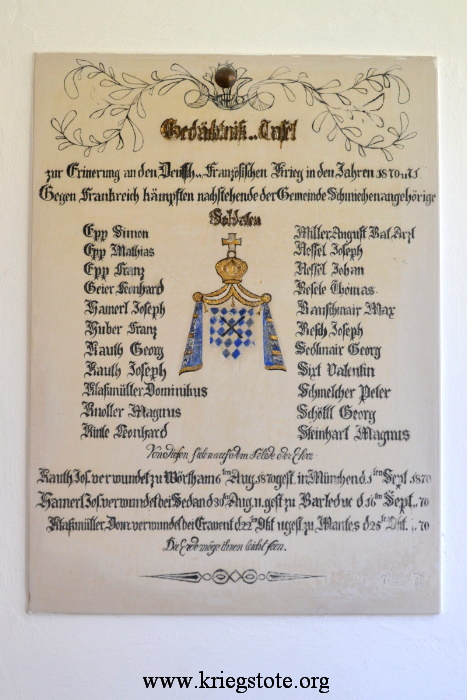 Gedächtniß-Tafel
zur Erinerung an den Deutsch-Französischen Krieg in den Jahren 1870 u. 71
Gegen Frankreich kämpften nachstehende der Gemeinde Schmiechen angehörige
Soldaten
Epp Simon
Epp Mathias
Epp Franz
Geier Leonhard
Hamerl Joseph
Huber Franz
Kauth Georg
Kauth Joseph
Klaßmüller Dominikus
Knoller Magnus
Leonhard
Miller August Bat. Arzt
Joseph
Johan
Thomas
Max
Resch Joseph
Sedlmair Georg
Sixt Valentin
Schmelcher Peter
Schöttl Georg
Steinhart Magnus
Von diesen auf dem Felde der Ehre
Kauth Jos. verwundet zu Wörth am 6ten Aug. 1870 gest. in München d. 1ten Sept. 1870
Hamerl Jos. verwundet bei Sedan d. Aug. u. gest. zu Barleduc d. 16ten Sept. 70
Klaßmüller Dom. verwundet bei d. 22ten Okt. u. gest. zu Mantes d. 25ten Okt. 70
Die Erde möge ihnen leicht sein.
www.kriegstote.org